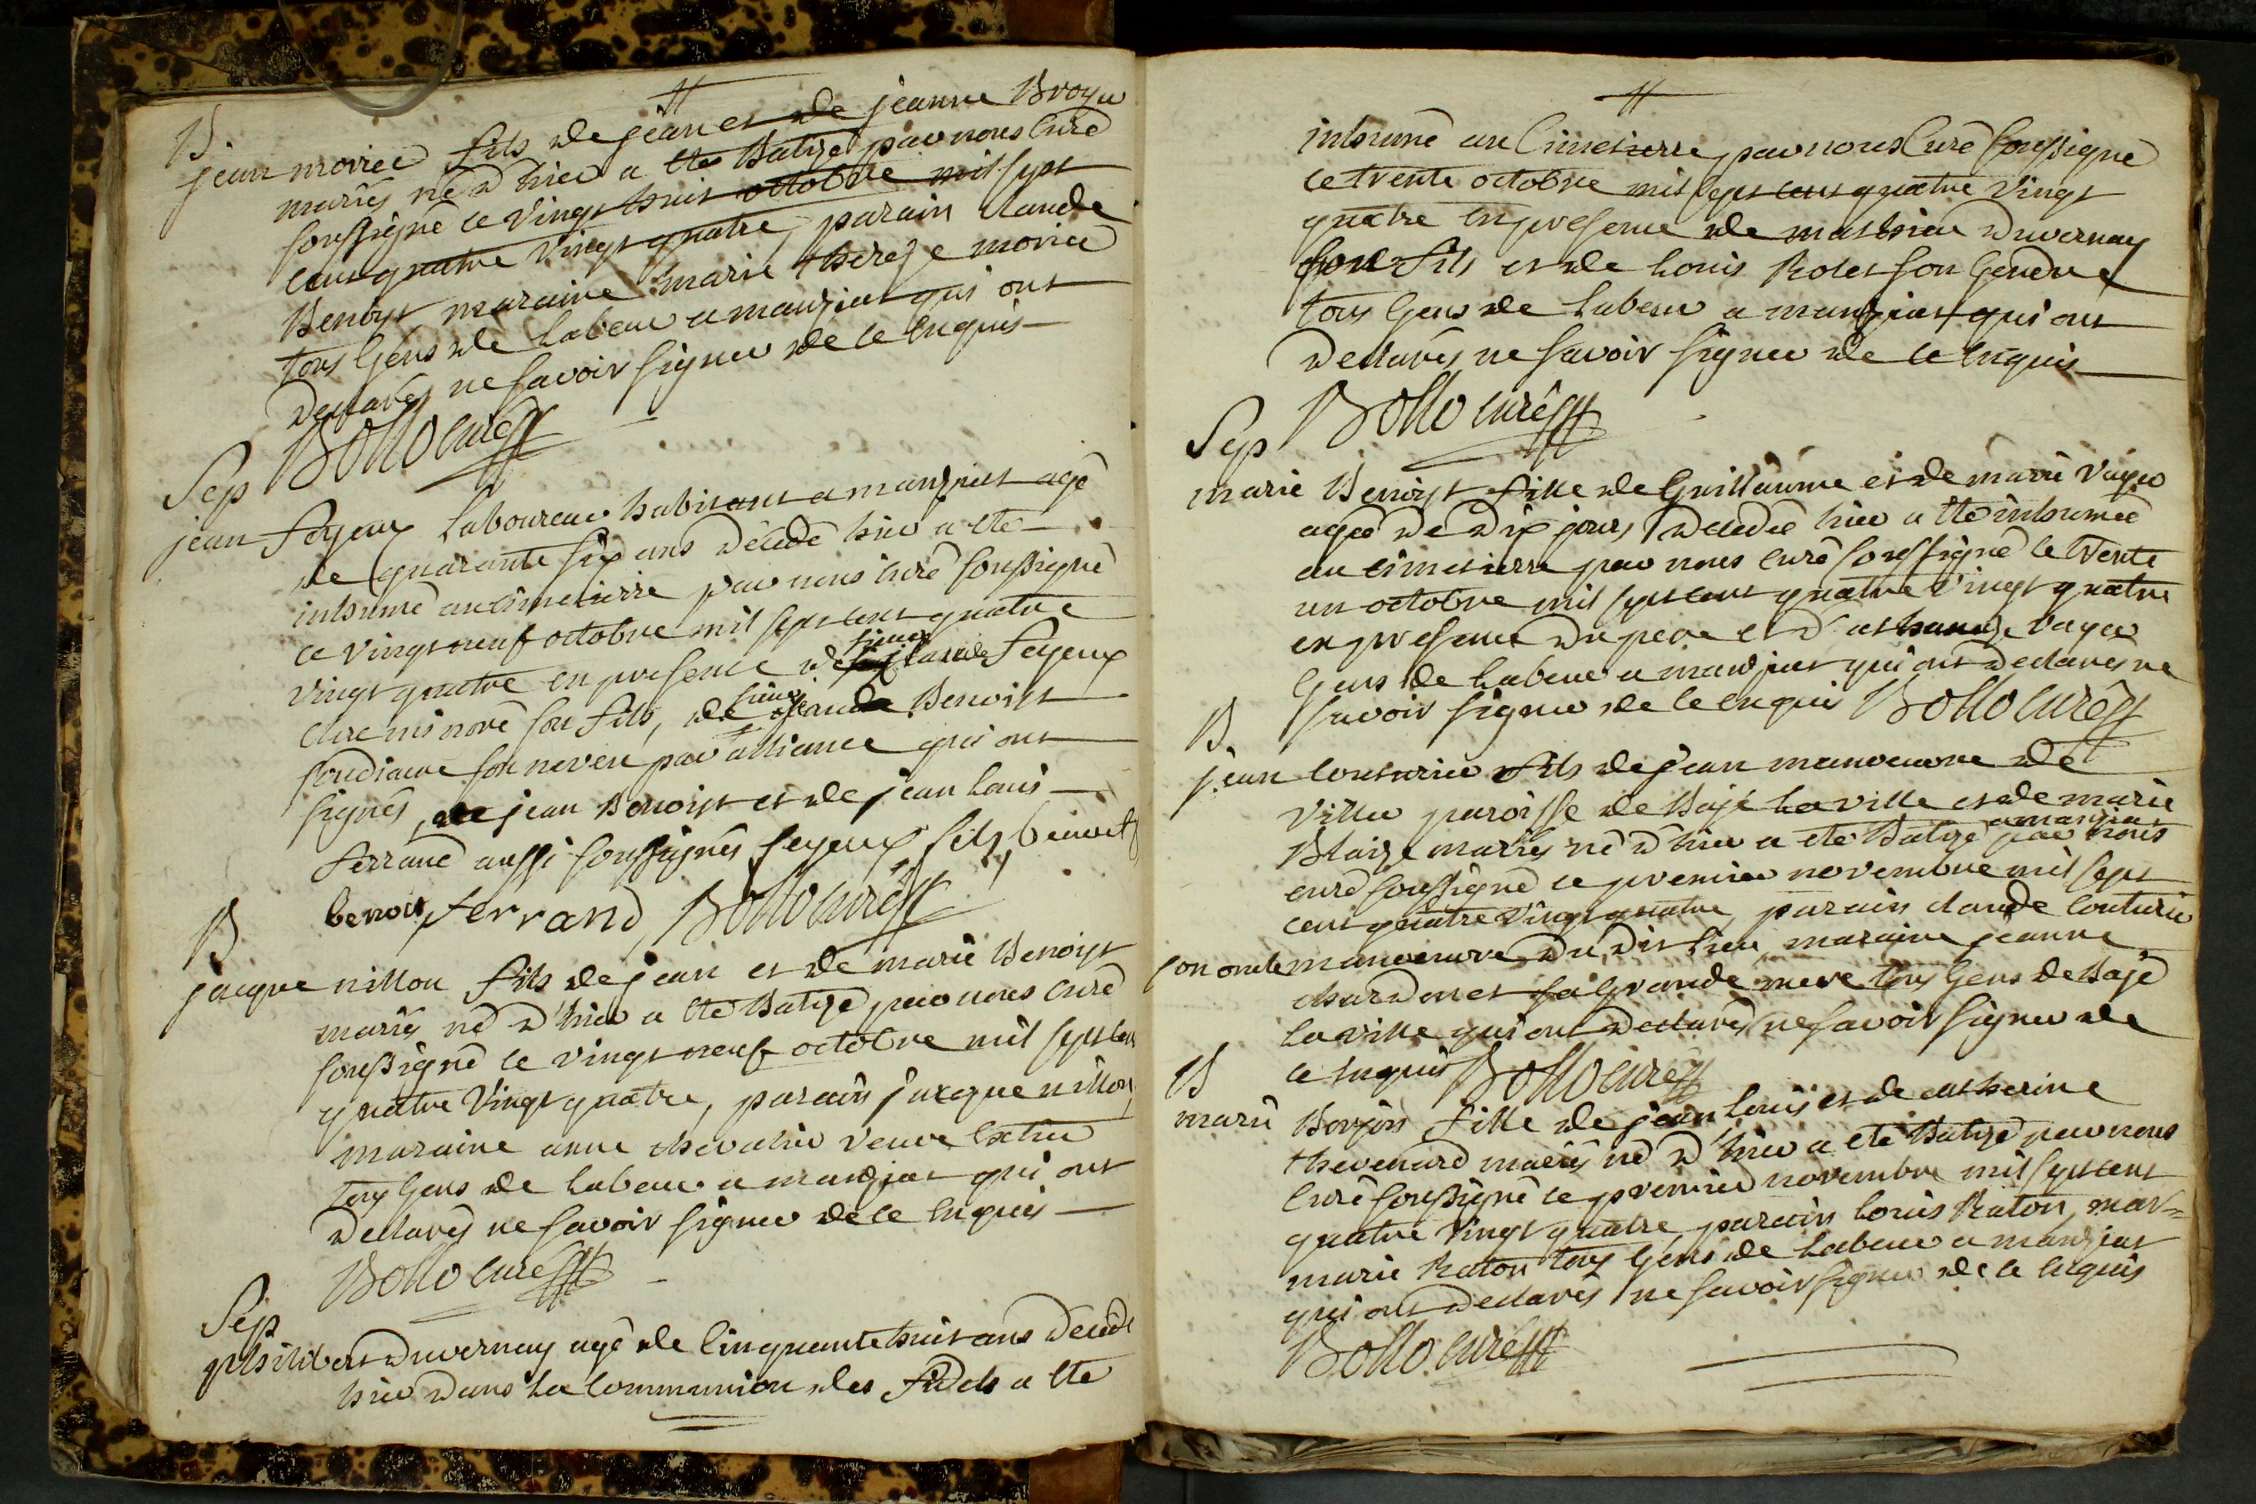 B
jean morier fils de jean et de jeanne Broyer
mariés né d'hier a ete Batizé par nous Curé
soussigné ce vingt huit octobre mil sept
cent quatre vingt quatre, parain claude
Benoist maraine marie thereze morier
tous Gens de labeur a manziat qui ont
declarés ne savoir signer de ce enquis
Bollo curé
Sep
jean feyeux laboureur habitant a manziat agé
de quarante six ans decedé hier a ete
inhumé au cimetierre par nous curé soussigné
ce vingt neuf octobre mil sept cent quatre
vingt quatre en presence de sieur claude feyeux
clerc minoré son fils, de sieur claude Benoist
soudiacre son neveu par alliance qui ont
signés, de jean Benoist et de jean louis
ferrand aussi soussignés feyeux fils, benoit
benoit ferrand, Bollo curé
B
jacque nillon fils de jean et de marie Benoist
mariés né d'hier a ete Batizé par nous curé
soussigné ce vingt neuf octobre mil sept cent
quatre vingt quatre, parain jacque nillon,
maraine anne chevalier veuve
tous Gens de labeur a manziat qui ont
declarés ne savoir signer de ce enquis
Bollo curé
Sep
philibert Duvernay agé de Cinquante huit ans decedé
hier dans la Communion des fidels a ete
inhumé au Cimetierre par nous Curé soussigné
ce trente octobre mil sept cent quatre vingt
quatre en presence de mathieu Duvernay
son fils et de louis Rolet son Gendre
tous Gens de labeur a manziat qui ont
declarés ne savoir signer de ce enquis
Bollo curé
Sep
marie Benoist fille de Guillaume et de marie Vayer
agée de dix jours decedée hier a ete inhumée
au cimetierre par nous curé soussigné le trente
un octobre mil sept cent quatre vingt quatre
en presence du pere et d'athanaze vayer
Gens de labeur a manziat qui ont declarés ne
savoir signer de ce enquis Bollo curé
B
jean Couturier fils de jean manoeuvre de
paroisse de Bajé la ville et de marie
Blaize mariés né d'hier a ete Batizé a manziat par nous
curé soussigné ce premier novembre mil sept
cent quatre vingt quatre parain claude Couturier
son oncle manoeuvre du dit lieu, maraine jeanne
chardonet sa Grande mere tous Gens de Bajé
la ville qui ont declarés ne savoir signer de
ce enquis Bollo curé
B
marie Borjon fille de jean louis et de catherine
thevenard mariés né d'hier a ete Batizé par nous
Curé soussigné ce premier novembre mil sept cent
quatre vingt quatre parain louis Raton, mar=
marie Raton tous Gens de labeur a manziat
qui ont declarés ne savoir signer de ce enquis
Bollo curé